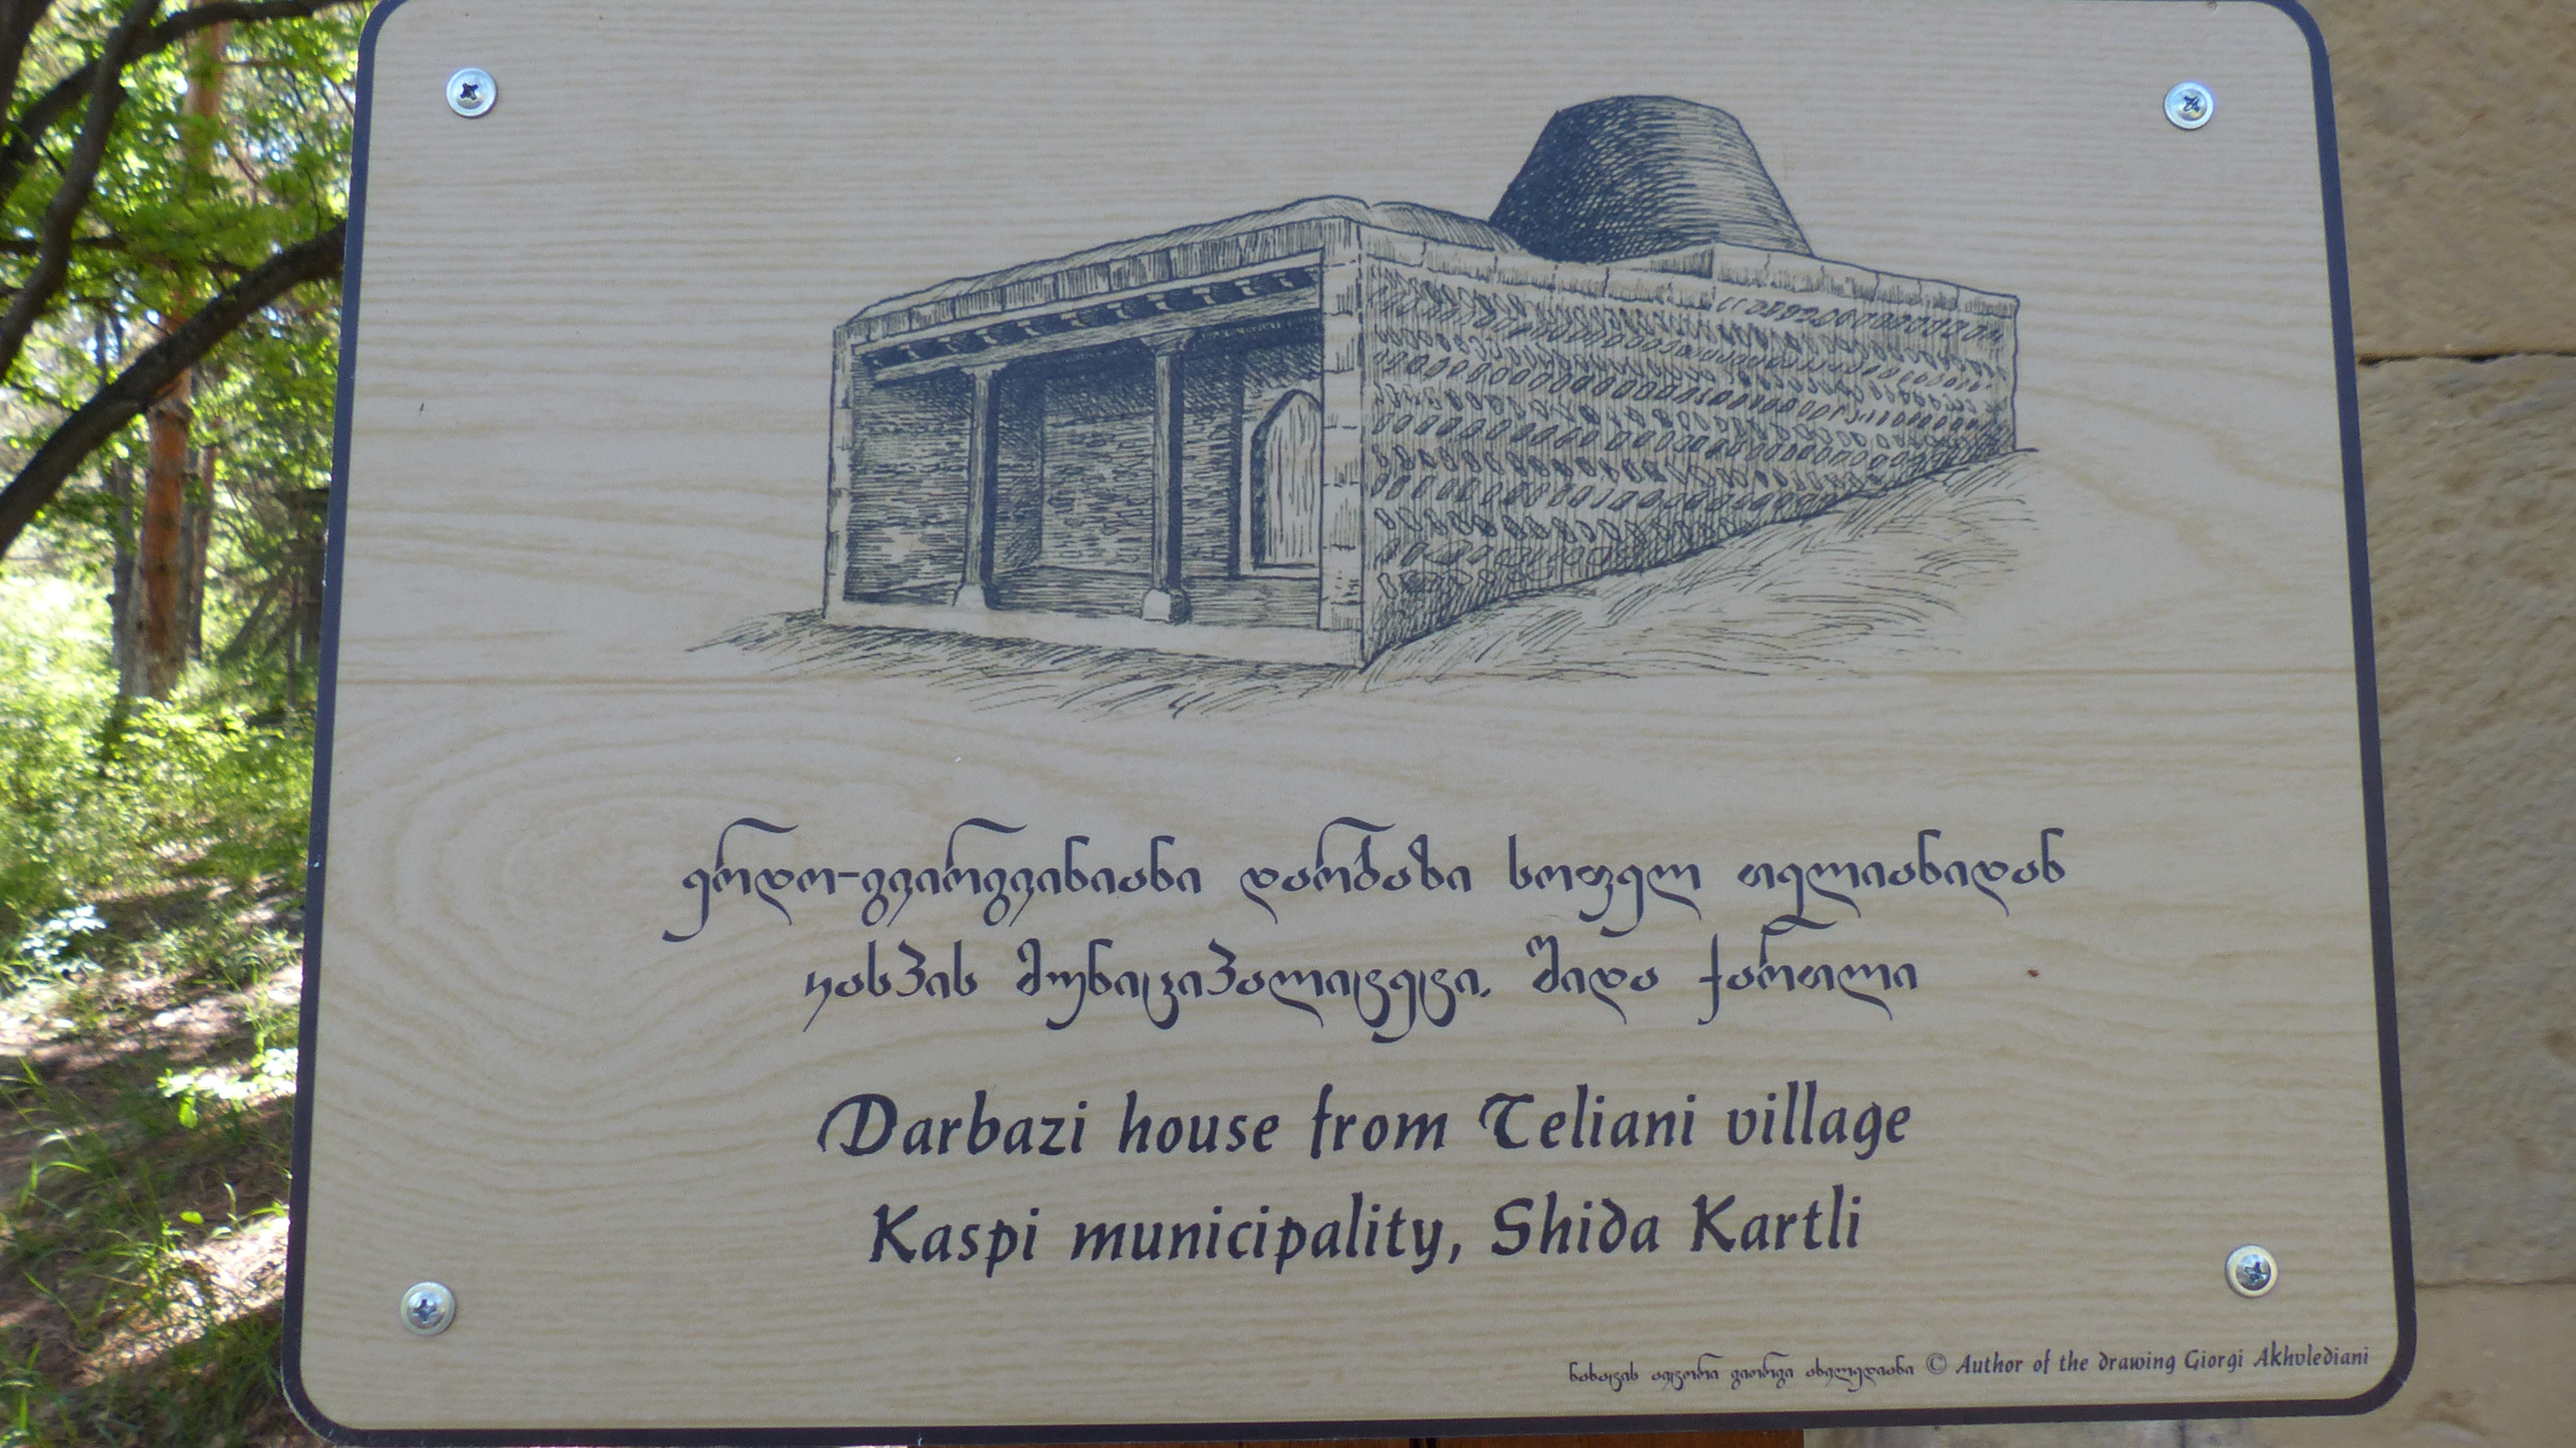 ერდო-გვირგვინიანი დარბაზი სოფელ თელიანიდან
კასპის მუნიციპალიტეტი, შიდა ქართლი
Darbazi house from Teliani village
Kaspi municipality, Shida Kartli
ნახატის ავტორი გიორგი ახვლედიანი © Author of the drawing Giorgi Akhvlediani